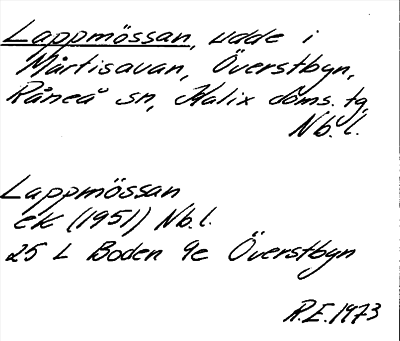 Lappmössan, udde i
Mårtisavan, Överstbyn,
Råneå sn, Kalix doms. tg,
Nb. l.
Lappmössan
ek (1951) Nb. l.
25 L Boden 9e Överstbyn
R.E. 1973